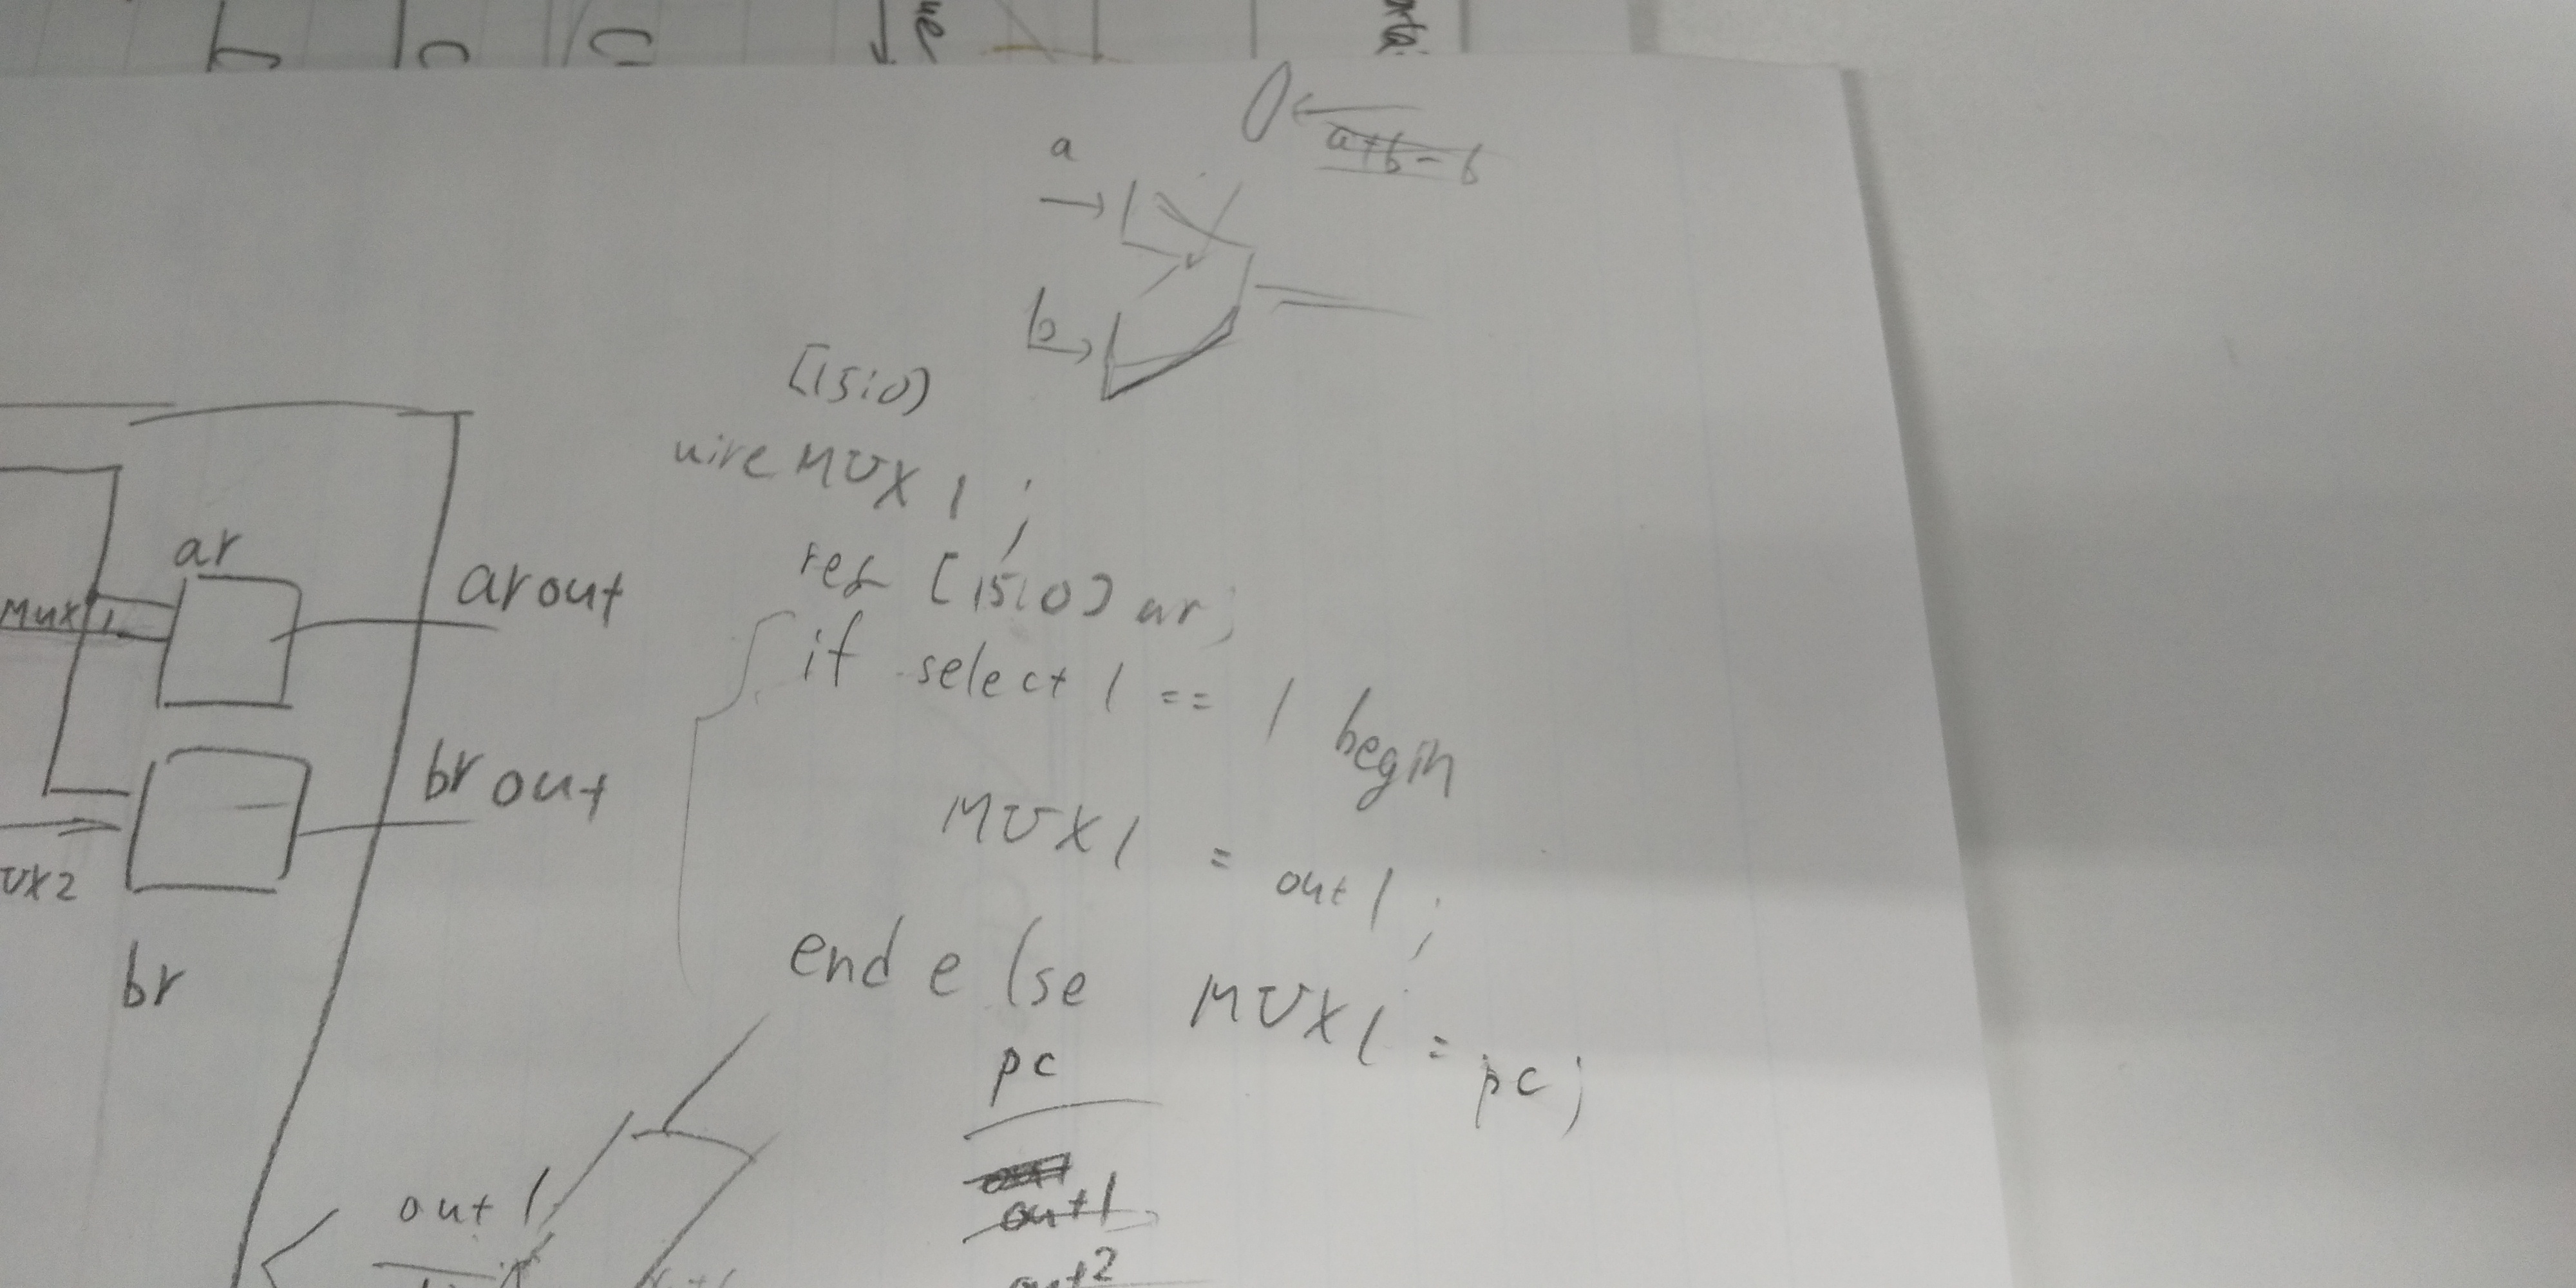 a
a+b-b
b
[15:0]
wire MUX 1 ;
reg [15:0] ar;
if select 1 == 1 begin
MUX1 = out1;
end else MUX1 = pc;
ar
ar out
Mux1
br out
UX2
br
pc
out1
out1
out2